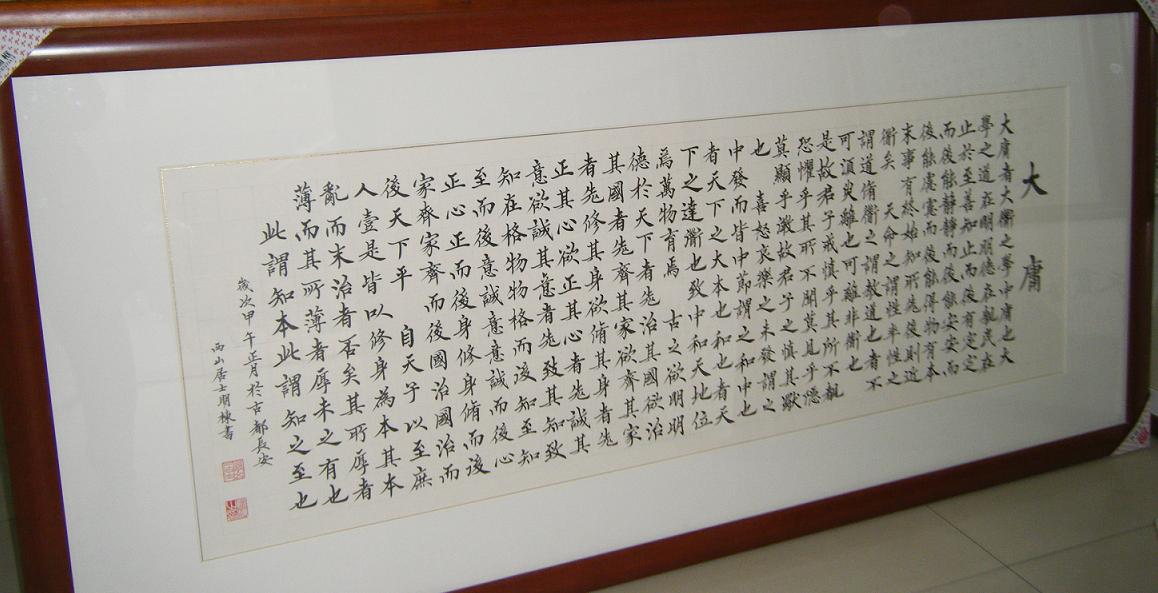 大庸
大庸者大衟之學中庸也大
學之道在明明德在親民在
止於至善知止而後有定定
而後能靜靜而後能安安而
後能慮慮而後能得物有本
末事有終始知所先後則近
衟矣 天命之謂性率性之
謂道脩衟之謂教道也者不
可須臾離也可離非衟也
是故君子戒慎乎其所不覩
恐懼乎其所不聞莫見乎隱
莫顯乎微故君子之慎其獨
也 喜怒哀樂之未發謂之
中發而皆中節謂之和中也
者天下之大本也和也者天
下之達衟也致中和天地位
焉萬物育焉 古之欲明明
德於天下者先治其國欲治
其國者先齊其家欲齊其家
者先修其身欲脩其身者先
正其心欲正其心者先誠其
意欲誠其意者先致其知致
知在格物物格而後知至知
至而後意誠意誠而後心
正心正而後身修身脩而後
家齊家齊而後國治國治而
後天下平 自天子以至庶
人壹是皆以修身為本其本
亂而末治者否矣其所厚者
薄而其所薄者厚未之有也
此謂知本此謂知之至也
歲次甲午正月於古都長安
西山居士明棟書